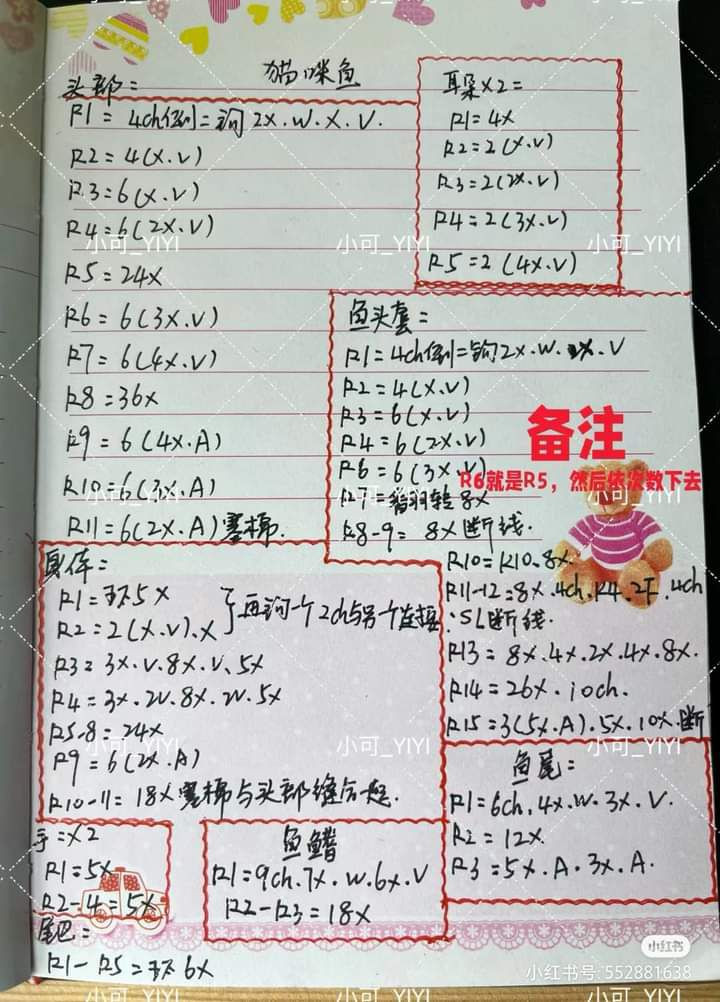 猫咪鱼
头部=
R1= 4ch倒二沟 2X.W.X.V.
R2=4(X.V)
R3=6(X.V)
R4=6(2X.V)
R5=24X
R6=6(3X.V)
R7=6(4X.V)
R8=36X
R9=6(4X.A)
R10=6(3X.A)
R11=6(2X.A)塞棉.
耳朵X2=
R1=4X
R2=2(X.V)
R3=2(2X.V)
R4=2(3X.V)
R5=2(4X.V)
鱼头套=
R1=4ch倒二钩2X.W.X.V
R2=4(X.V)
R3=6(X.V)
R4=6(2X.V)
R6=6(3X.V)
R7=8X
R8-9= 8X断线.
备注
R6就是R5，然后依次数下去
R10=R10.8X.
R11-12=8X.4ch.R4.2F.4ch
.SL断线.
R13=8X.4X.2X.4X.8X.
R14=26X.10ch.
R15=3(5X.A).5X.10X.断
身体=
R1=环5X
R2=2(X.V).X
再沟一个2ch与另一个连接.
R3=3X.V.8X.V.5X
R4=3X.2V.8X.2V.5X
R5-8=24X
R9=6(2X.A)
R10-11=18X塞棉与头部缝合一起.
鱼尾=
R1=6ch.4X.W.3X.V.
R2=12X.
R3=5X.A.3X.A.
手=X2
R1=5X
R2-4=5X
鱼鳍
R1=9ch.7X.W.6X.V
R2-R3=18X
尾巴=
R1-R5=环6X
小可_YIYI
小可_YIYI
小可_YIYI
小可_YIYI
小可_YIYI
小可_YIYI
小可_YIYI
小可_YIYI
小可_YIYI
小红书
小红书号:552881638